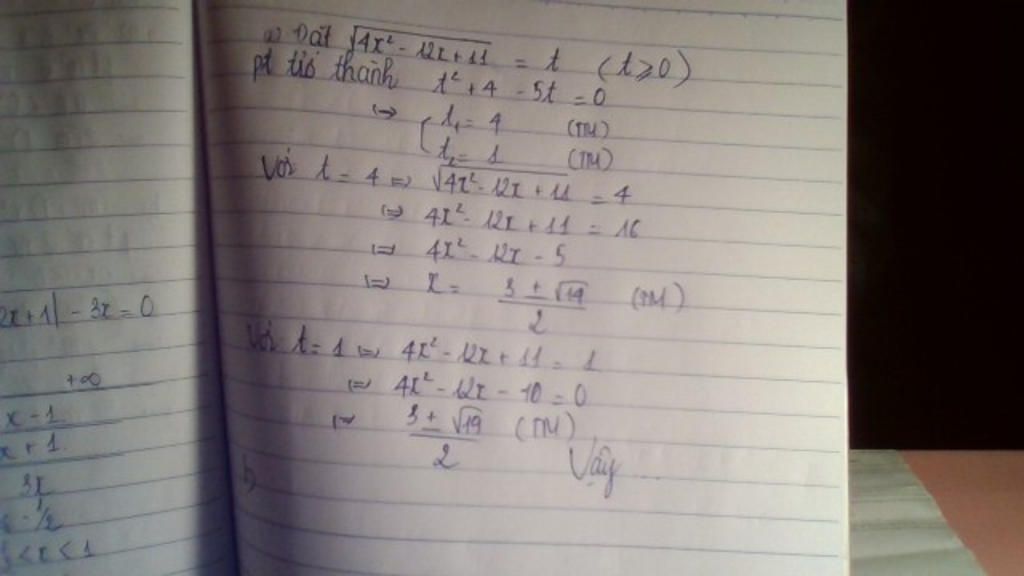 2x+1| - 3x = 0
+∞
x - 1
x + 1
3x
- 1/2
< x < 1
a) Đặt √(4x² - 12x + 11) = t (t ⩾ 0)
pt trở thành t² + 4 - 5t = 0
⇔ { t₁ = 4 (TM)
t₂ = 1 (TM)
Với t = 4 ⇔ √(4x² - 12x + 11) = 4
⇔ 4x² - 12x + 11 = 16
⇔ 4x² - 12x - 5
⇔ x = (3 ± √14)/2 (TM)
Với t = 1 ⇔ 4x² - 12x + 11 = 1
⇔ 4x² - 12x - 10 = 0
⇔ (3 ± √19)/2 (TM)
Vậy ...
b)